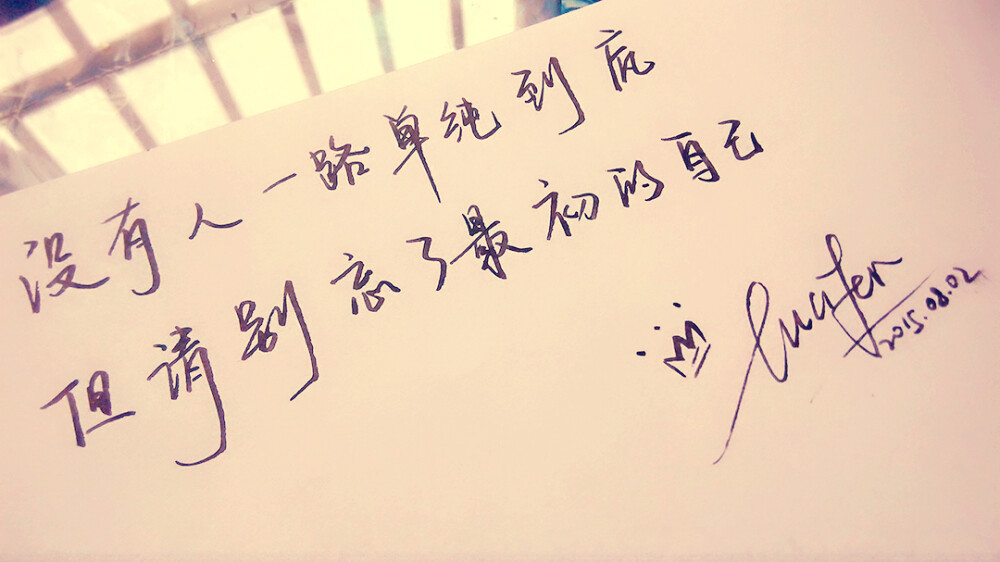 没有人一路单纯到底
但请别忘了最初的自己
Lucifer
2015.08.02